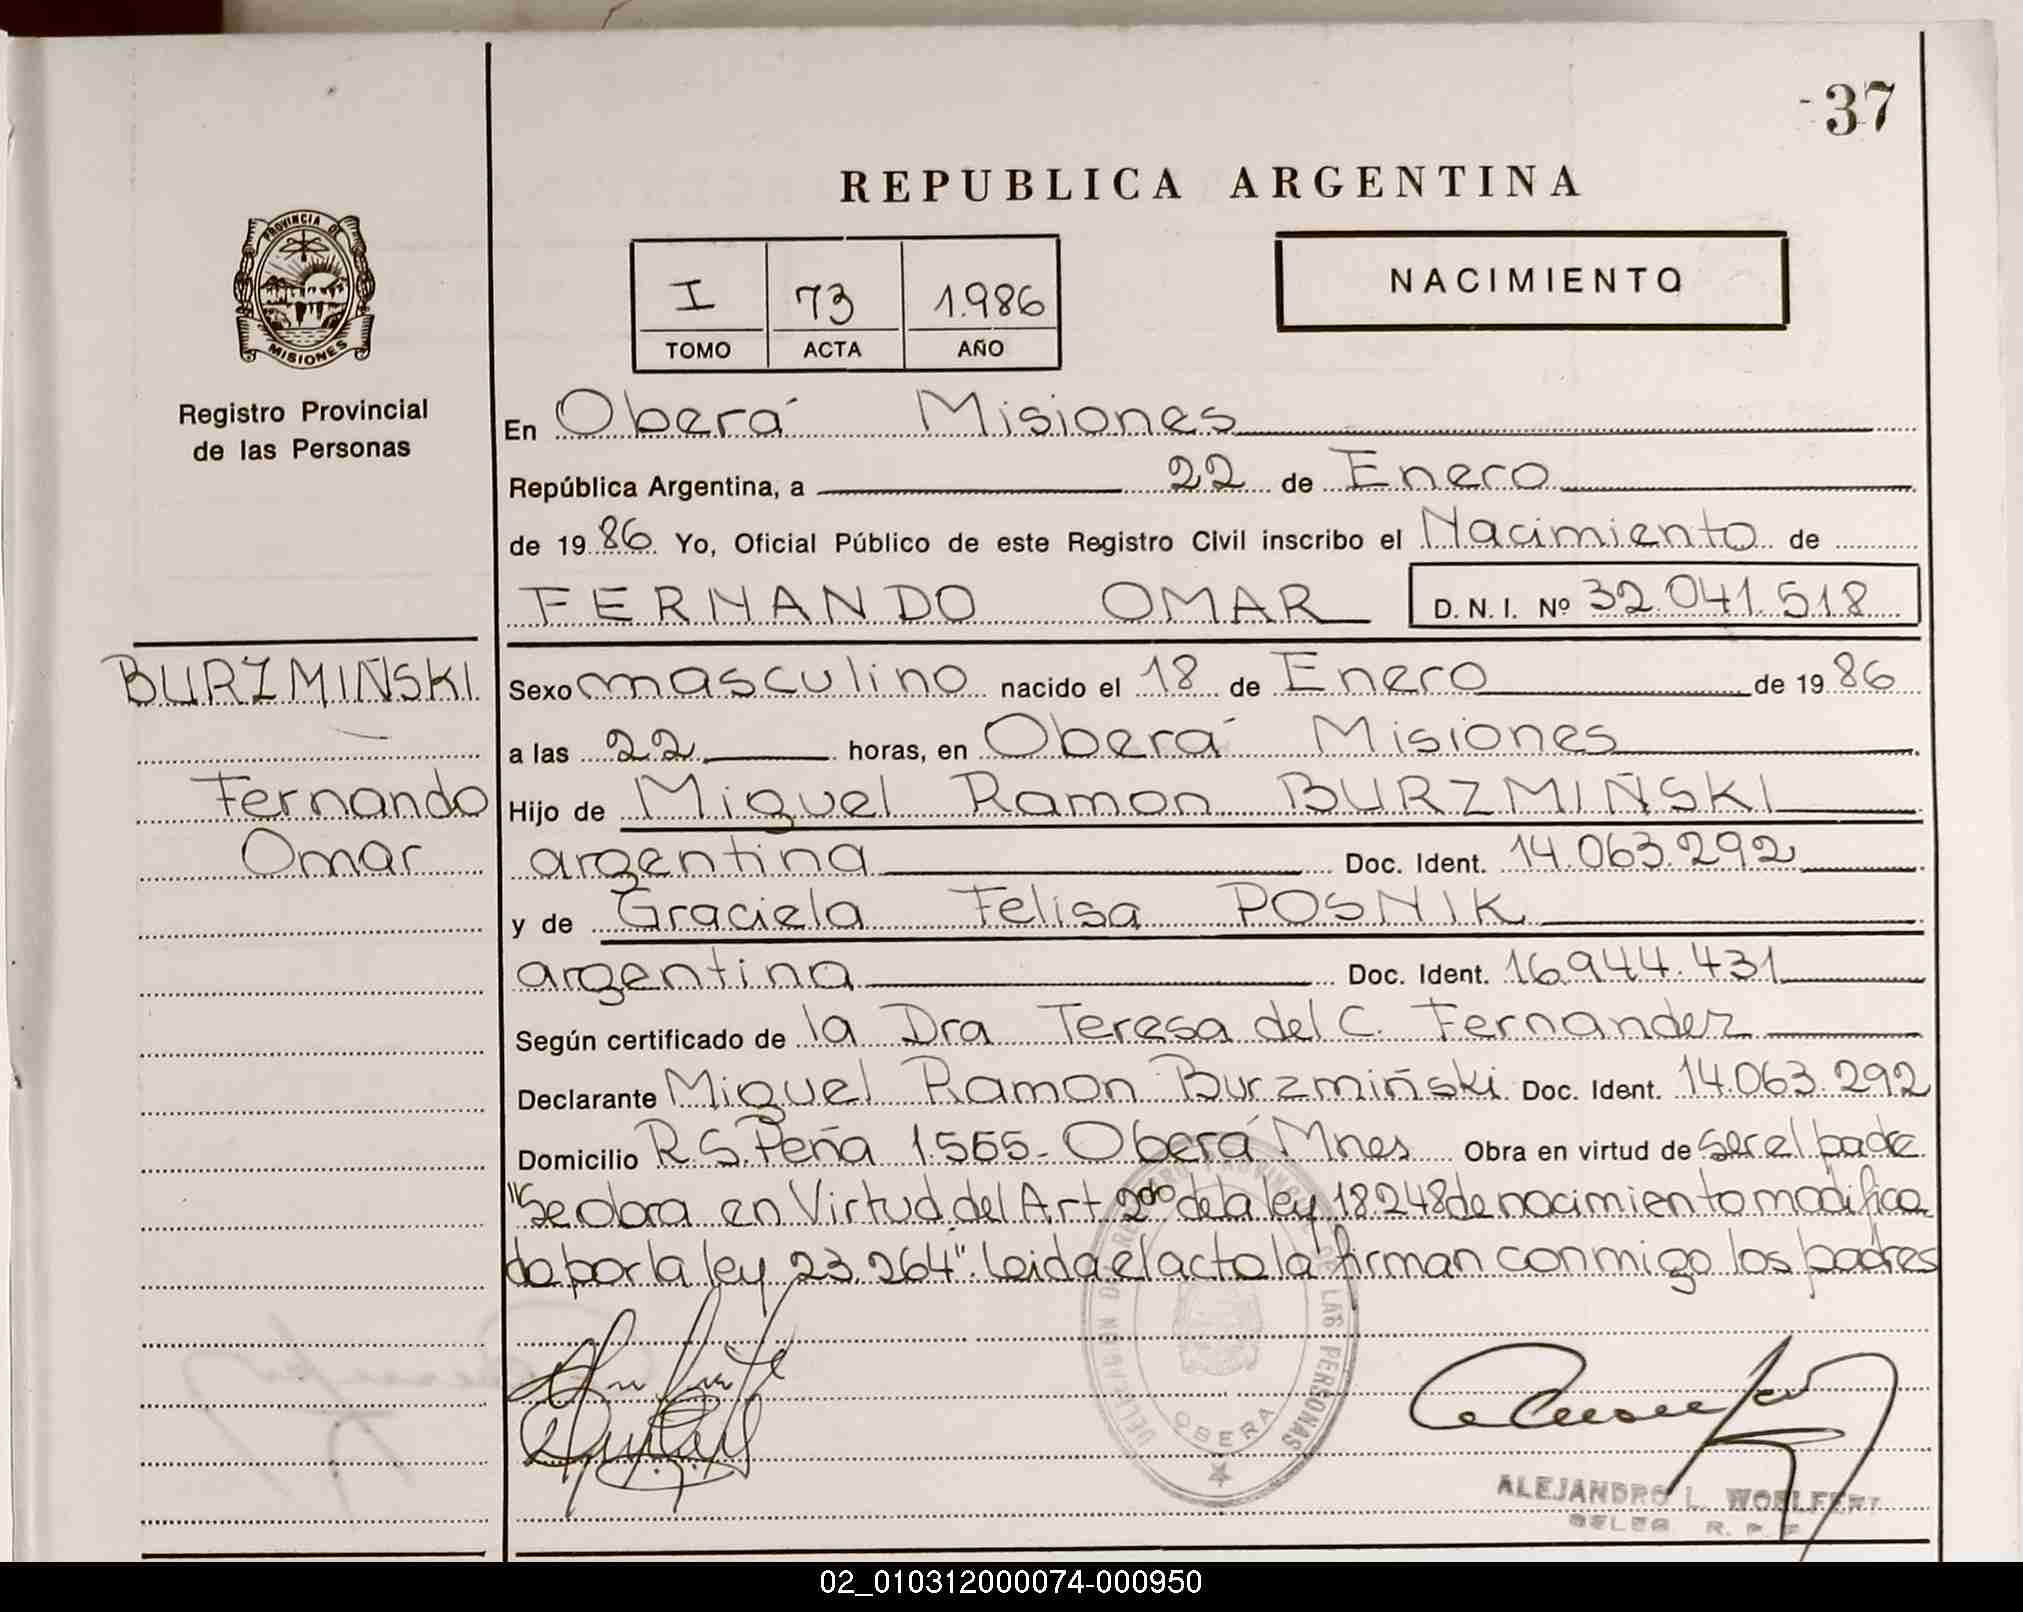 -37
REPUBLICA ARGENTINA
PROVINCIA DE
MISIONES
I 73 1.986
TOMO ACTA AÑO
NACIMIENTO
Registro Provincial
de las Personas
En Oberá Misiones
República Argentina, a 22 de Enero
de 1986 Yo, Oficial Público de este Registro Civil inscribo el Nacimiento de
FERNANDO OMAR D. N. I. Nº 32.041.518
BURZMIÑSKI
Fernando
Omar
Sexo masculino nacido el 18 de Enero de 1986
a las 22 horas, en Oberá Misiones
Hijo de Miguel Ramon BURZMIÑSKI
argentina Doc. Ident. 14.063.292
y de Graciela Felisa POSNIK
argentina Doc. Ident. 16.944.431
Según certificado de la Dra Teresa del C. Fernandez
Declarante Miguel Ramon Burzmiñski Doc. Ident. 14.063.292
Domicilio R.S.Peña 1.555- Oberá Mnes Obra en virtud de ser el padre
"Se obra en Virtud del Art. 2do de la ley 18.248 de nacimiento modifica
do por la ley 23.264". Leida el acta la firman conmigo los padres
LAS PERSONAS
OBERA
ALEJANDRO L. WOELFERT
02_010312000074-000950